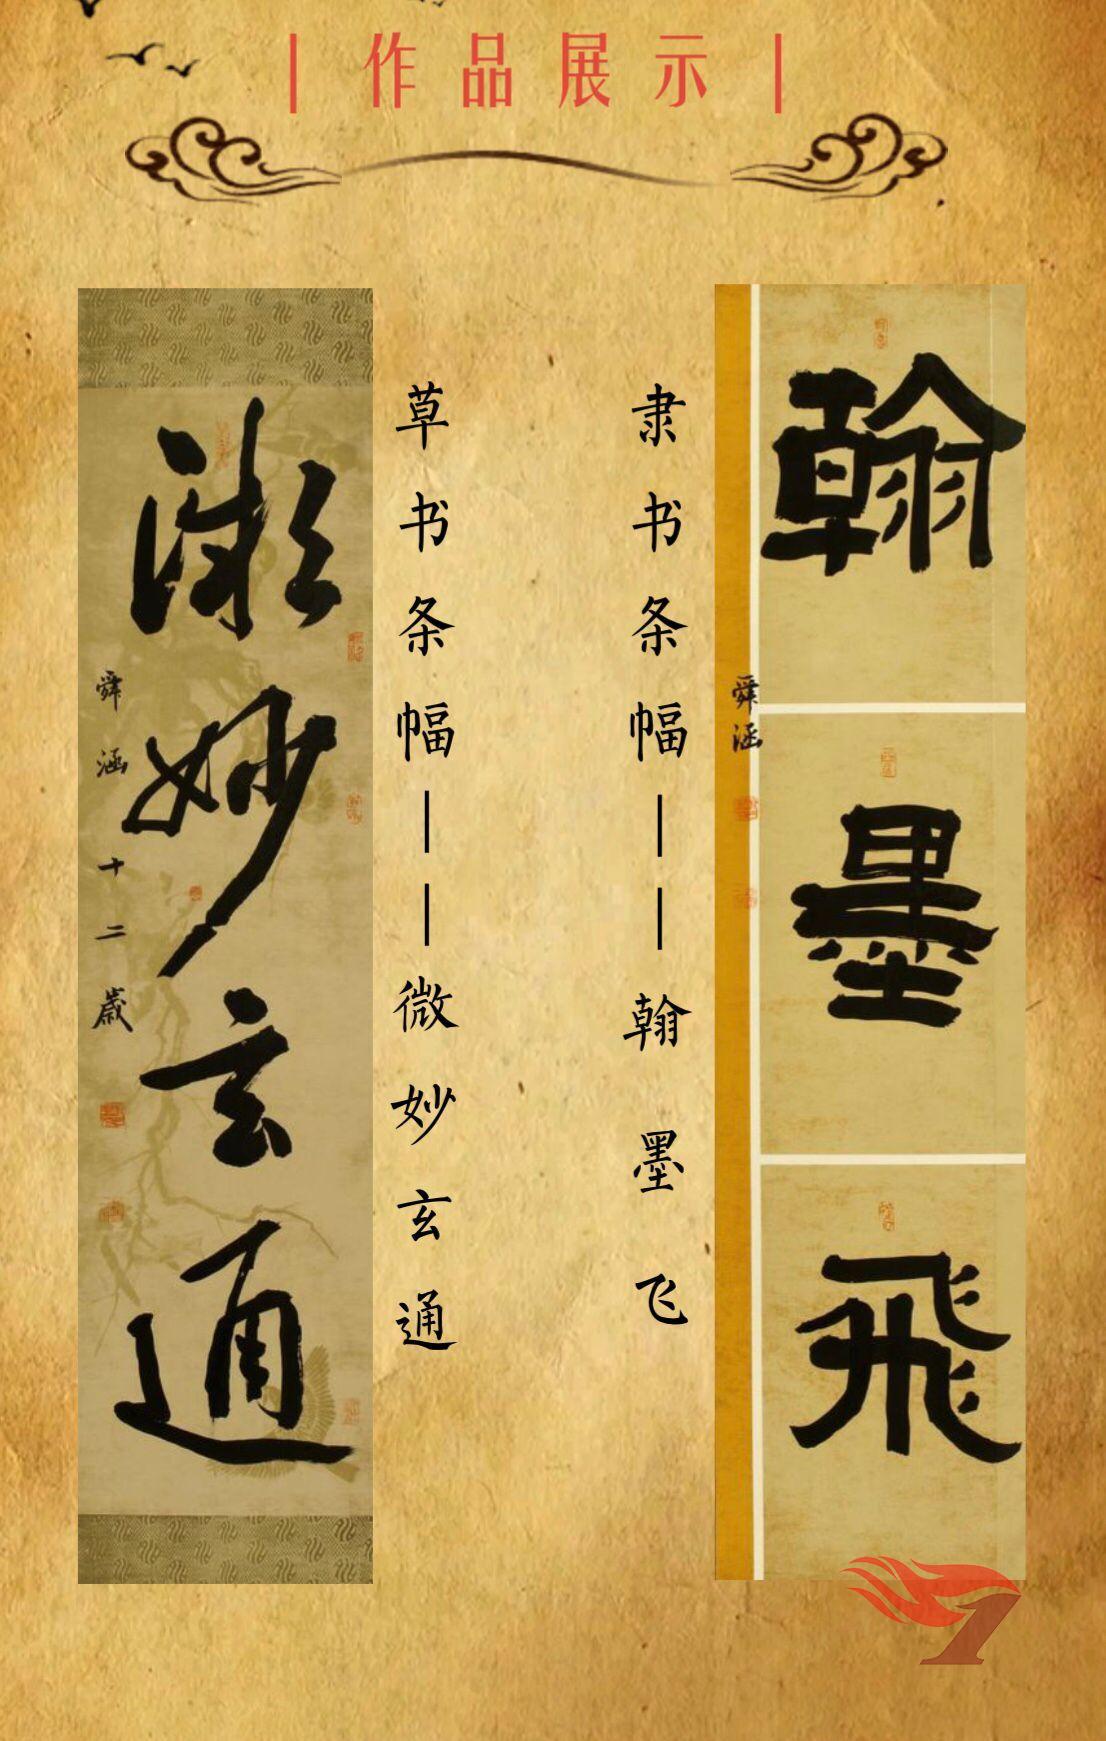 ｜作品展示｜
翰墨飛
舜涵
隶书条幅——翰墨飞
草书条幅——微妙玄通
微妙玄通
舜涵十二歲
1